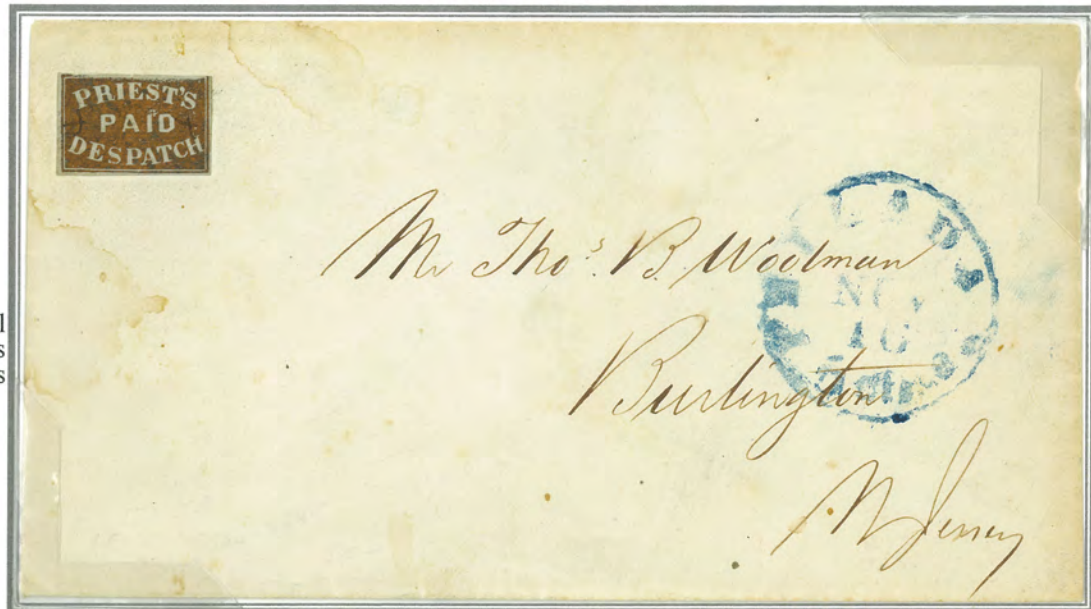 PRIEST'S
PAID
DESPATCH
Mr Tho s. B. Woodman
Burlington
N Jersey
NOV
16
l
s
s